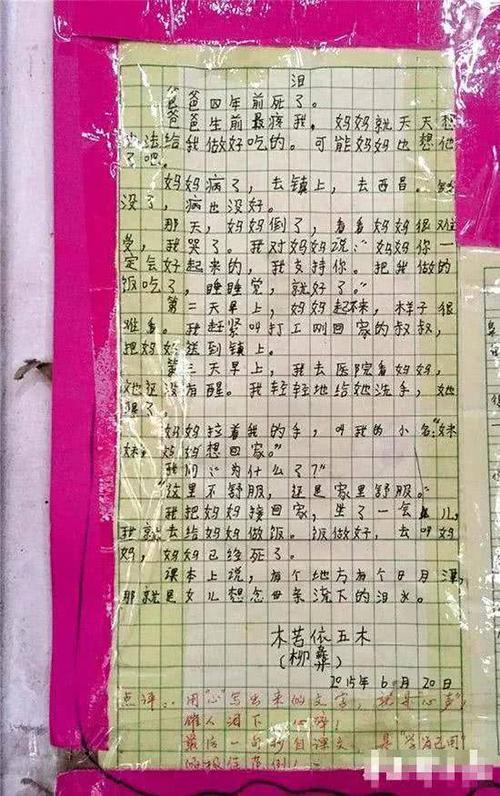 泪
爸爸四年前死了。
爸爸生前最疼我，妈妈就天天想
办法给我做好吃的。可能妈妈也想他
了吧。
妈妈病了，去镇上，去西昌。钱
没了，病也没好。
那天，妈妈倒了，看看妈妈很难
受，我哭了。我对妈妈说：“妈妈你一
定会好起来的，我支持你。把我做的
饭吃了，睡睡觉，就好了。”
第二天早上，妈妈起不来，样子很
难看。我赶紧叫打工刚回家的叔叔，
把妈妈送到镇上。
第三天早上，我去医院看妈妈，
她还没有醒。我轻轻地给她洗手，她
醒了。
妈妈拉着我的手，叫我的小名“妹
妹，妈妈想回家。”
我问：“为什么了？”
“这里不舒服，还是家里舒服。”
我把妈妈接回家，坐了一会儿，
我就去给妈妈做饭。饭做好，去叫妈
妈，妈妈已经死了。
课本上说，有个地方有个日月潭，
那就是女儿想念母亲流下的泪水。
木苦依五木
(柳彝)
2015年6月20日
点评：用“心”写出来的文字，就是心声，
催人泪下
最后一句抄自课文，是“学为己用”